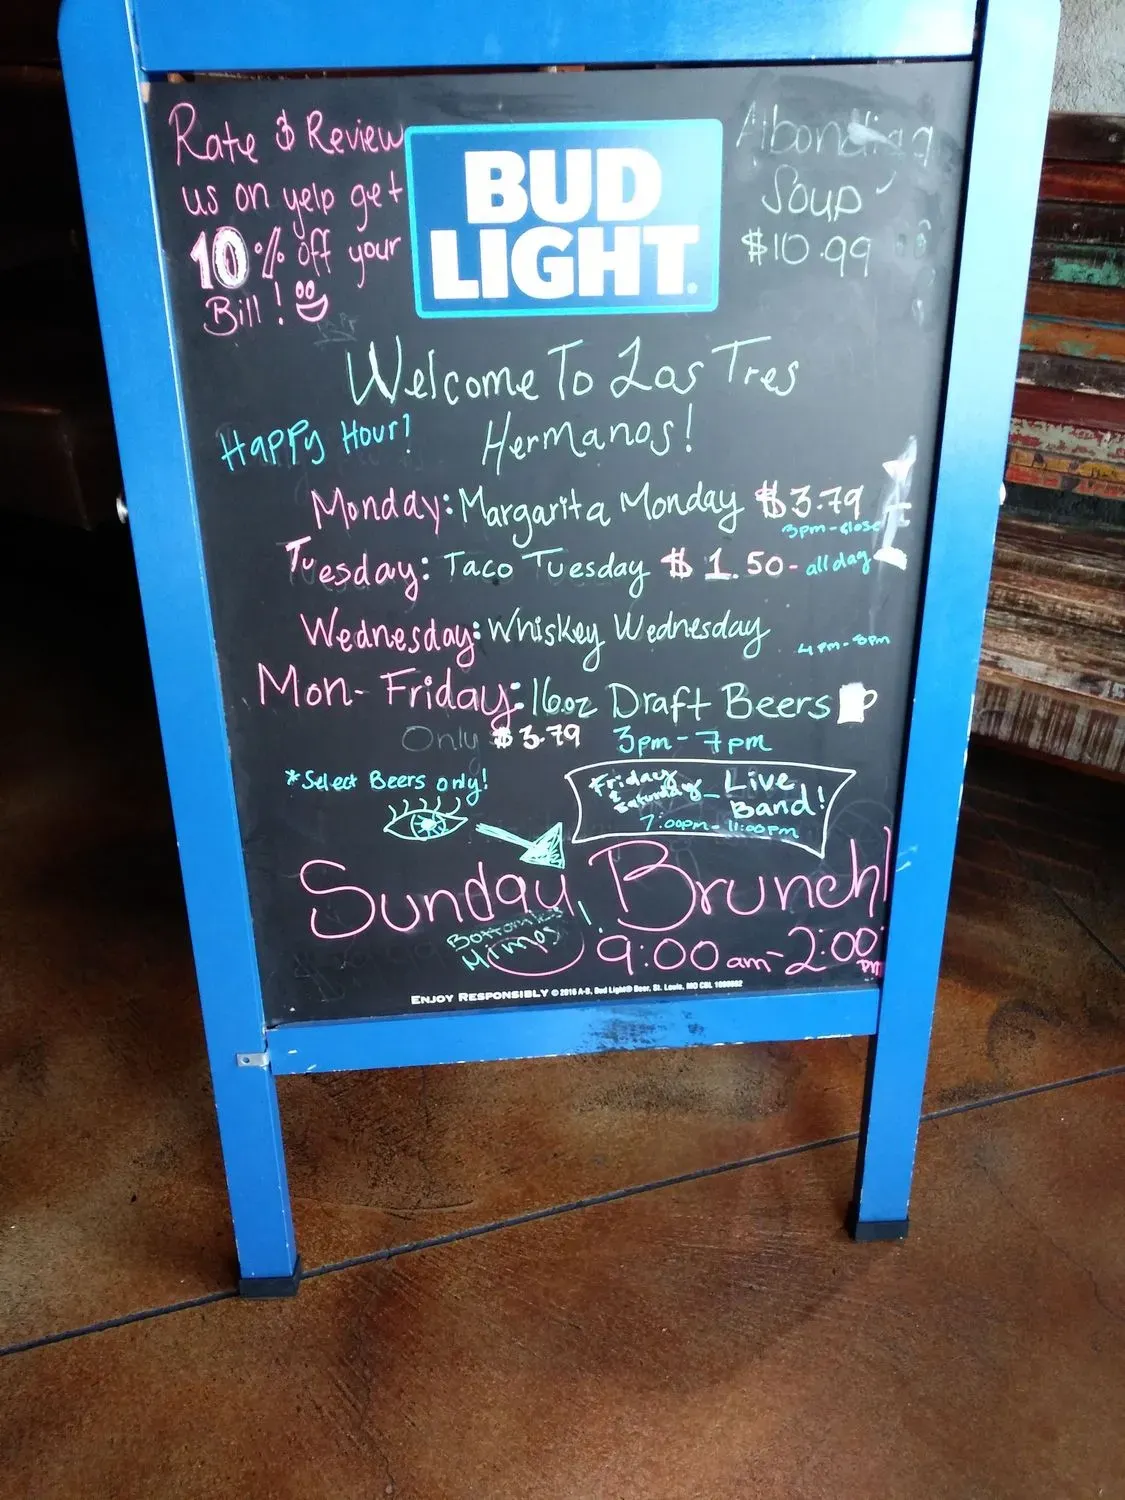 Rate & Review
us on yelp get
10% off your
Bill!
BUD
LIGHT.
Albondiga
Soup
$10.99
Welcome To Los Tres
Hermanos!
Happy Hour!
Monday: Margarita Monday $3.79
3pm-close
Tuesday: Taco Tuesday $1.50- all day
Wednesday: Whiskey Wednesday
4pm-8pm
Mon-Friday: 16oz Draft Beers
Only $3.79 3pm-7pm
*Select Beers only!
Friday & Saturday - Live Band!
7:00pm-11:00pm
Sunday Brunch!
Bottomless
Mimos!
9:00am-2:00pm
ENJOY RESPONSIBLY © 2016 A-B, Bud Light® Beer, St. Louis, MO